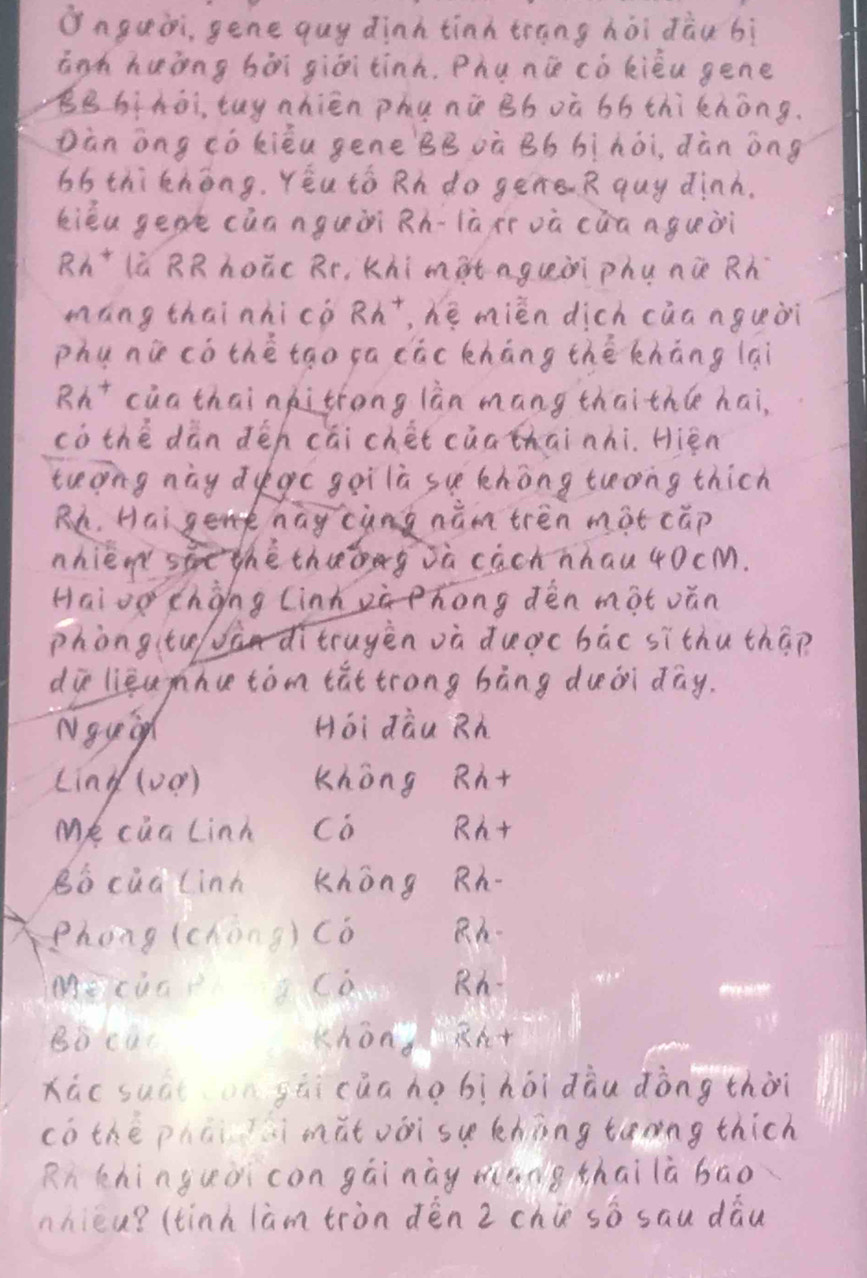 Ở người, gene quy định tính trạng hói đầu bị
ảnh hưởng bởi giới tính. Phụ nữ có kiểu gene
BB bị hói, tuy nhiên phụ nữ Bb và bb thì không.
Đàn ông có kiểu gene BB và Bb bị hói, đàn ông
bb thì không. Yếu tố Rh do gene R quy định.
kiểu gene của người Rh- là rr và của người
Rh+ là RR hoặc Rr. Khi một người phụ nữ Rh-
mang thai nhi có Rh+, hệ miễn dịch của người
phụ nữ có thể tạo ra các kháng thể kháng lại
Rh+ của thai nhi trong lần mang thai thứ hai,
có thể dẫn đến cái chết của thai nhi. Hiện
tượng này được gọi là sự không tương thích
Rh. Hai gene này cùng nằm trên một cặp
nhiễm sắc thể thường và cách nhau 40cM.
Hai vợ chồng Linh và Phong đến một văn
phòng tư vấn di truyền và được bác sĩ thu thập
dữ liệu như tóm tắt trong bảng dưới đây.
Người Hói đầu Rh
Linh (vợ) Không Rh+
Mẹ của Linh Có Rh+
Bố của Linh Không Rh-
Phong (chồng) Có Rh-
Mẹ của Có Rh-
Bố của Không Rh+
Xác suất con gái của họ bị hói đầu đồng thời
có thể phải đối mặt với sự không tương thích
Rh khi người con gái này mang thai là bao
nhiêu? (tính làm tròn đến 2 chữ số sau dấu